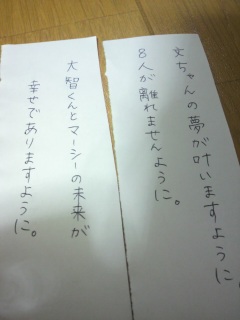 文ちゃんの夢が叶いますように。
8人が離れませんように。
大智くんとマーシーの未来が
幸せでありますように。